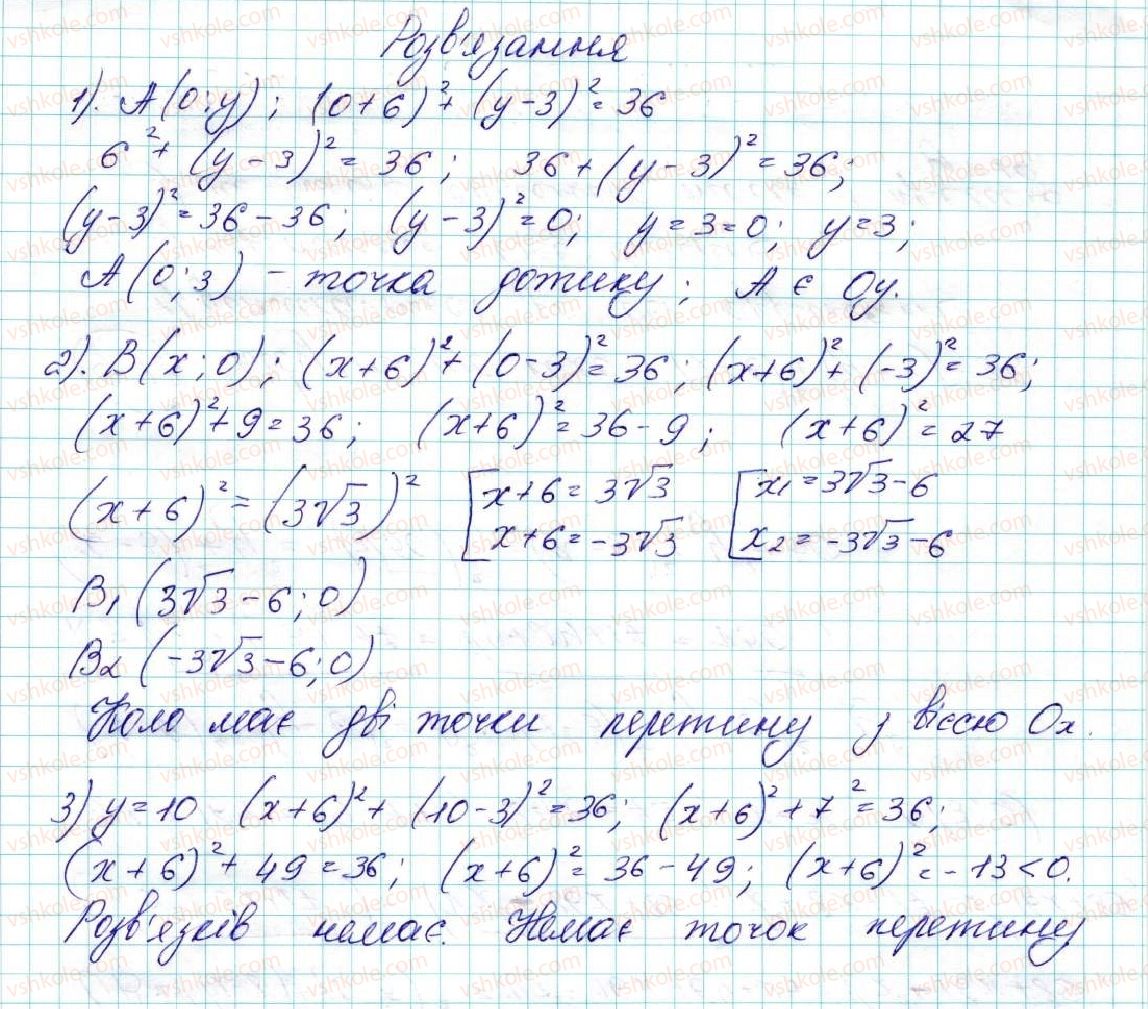 Розв'язання
1). A(0; y); (0+6)²+(y-3)²=36
6²+(y-3)²=36; 36+(y-3)²=36;
(y-3)²=36-36; (y-3)²=0; y=3=0; y=3;
A(0;3) - точка дотику; A є Oy.
2). B(x;0); (x+6)²+(0-3)²=36; (x+6)²+(-3)²=36;
(x+6)²+9=36; (x+6)²=36-9; (x+6)²=27
(x+6)²=(3√3)² [x+6=3√3 [x₁=3√3-6
x+6=-3√3 x₂=-3√3-6
B₁(3√3-6;0)
B₂(-3√3-6;0)
Коло має дві точки перетину з віссю Ox.
3) y=10 (x+6)²+(10-3)²=36; (x+6)²+7²=36;
(x+6)²+49=36; (x+6)²=36-49; (x+6)²=-13<0.
Розв'язків немає. Немає точок перетину